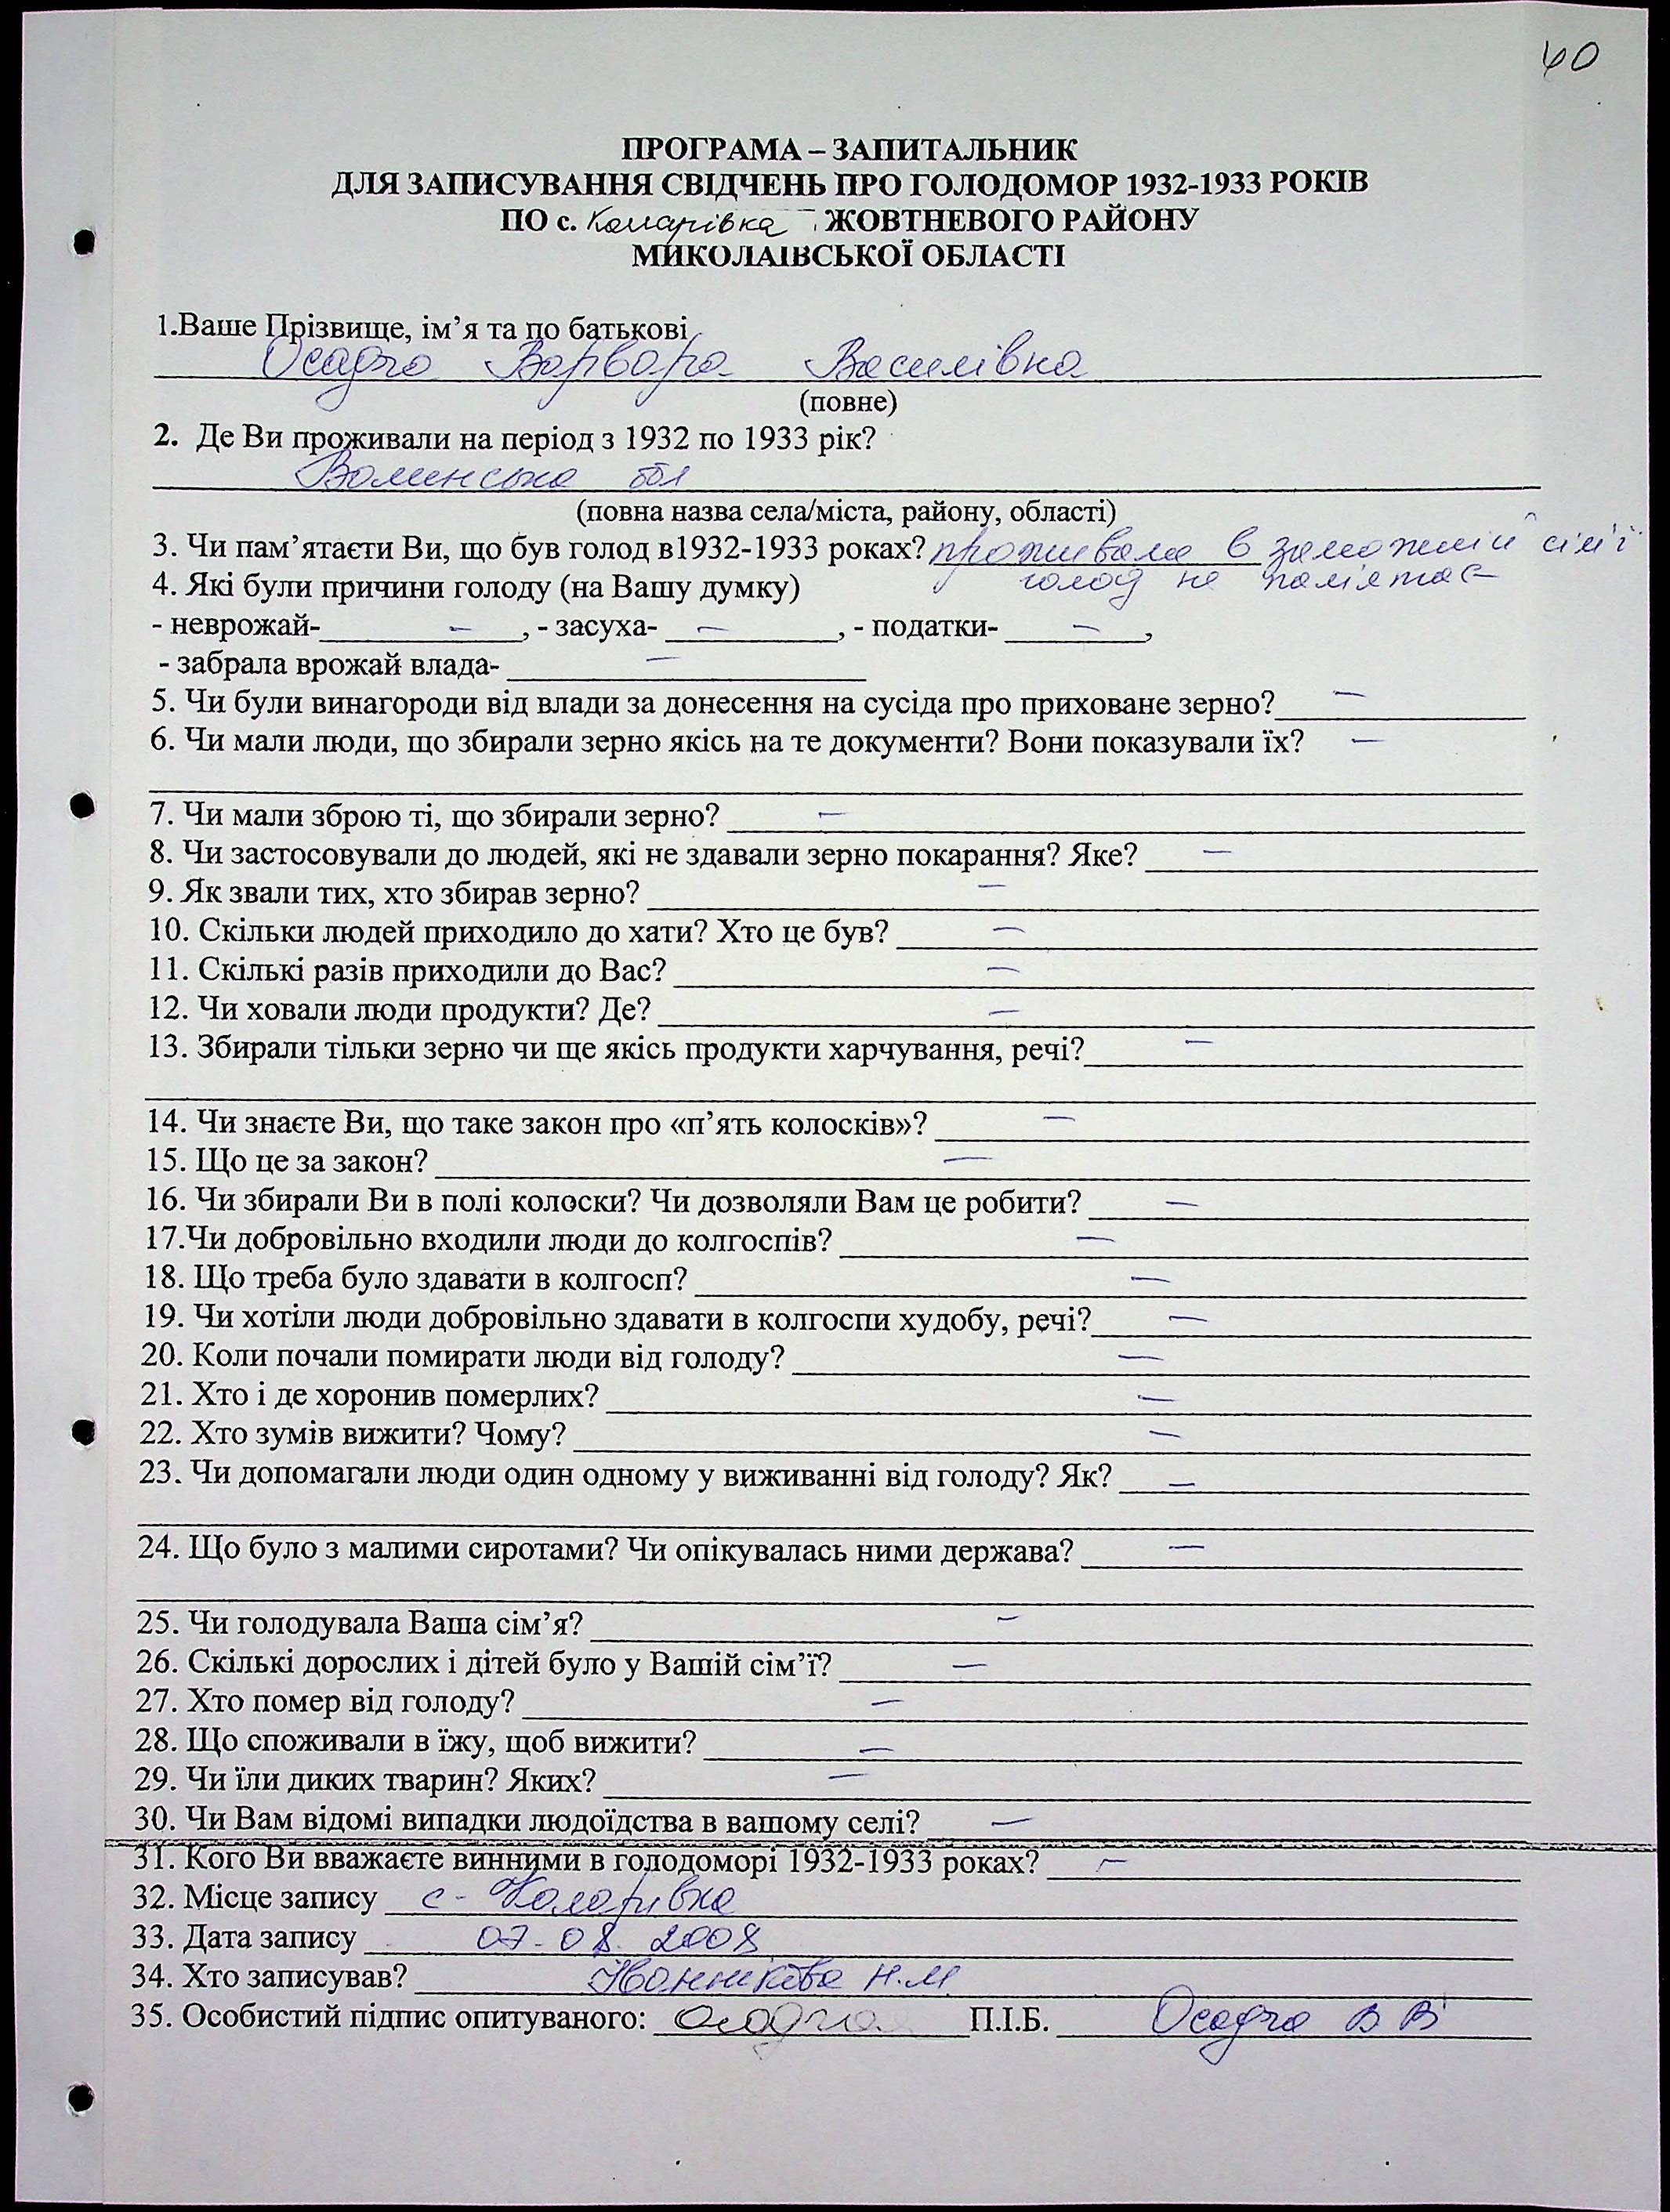 40
ПРОГРАМА – ЗАПИТАЛЬНИК
ДЛЯ ЗАПИСУВАННЯ СВІДЧЕНЬ ПРО ГОЛОДОМОР 1932-1933 РОКІВ
ПО с. Комарівка ЖОВТНЕВОГО РАЙОНУ
МИКОЛАЇВСЬКОЇ ОБЛАСТІ
1.Ваше Прізвище, ім’я та по батькові
Осадча Варвара Василівна
(повне)
2. Де Ви проживали на період з 1932 по 1933 рік?
Волинська обл
(повна назва села/міста, району, області)
3. Чи пам’ятаєти Ви, що був голод в1932-1933 роках? проживала в заможній сім'ї
голод не пам'ятає
4. Які були причини голоду (на Вашу думку)
- неврожай- –, - засуха- –, - податки- –,
- забрала врожай влада- –
5. Чи були винагороди від влади за донесення на сусіда про приховане зерно? –
6. Чи мали люди, що збирали зерно якісь на те документи? Вони показували їх? –
7. Чи мали зброю ті, що збирали зерно? –
8. Чи застосовували до людей, які не здавали зерно покарання? Яке? –
9. Як звали тих, хто збирав зерно? –
10. Скільки людей приходило до хати? Хто це був? –
11. Скількі разів приходили до Вас? –
12. Чи ховали люди продукти? Де? –
13. Збирали тільки зерно чи ще якісь продукти харчування, речі? –
14. Чи знаєте Ви, що таке закон про «п’ять колосків»? –
15. Що це за закон? –
16. Чи збирали Ви в полі колоски? Чи дозволяли Вам це робити? –
17.Чи добровільно входили люди до колгоспів? –
18. Що треба було здавати в колгосп? –
19. Чи хотіли люди добровільно здавати в колгоспи худобу, речі? –
20. Коли почали помирати люди від голоду? –
21. Хто і де хоронив померлих? –
22. Хто зумів вижити? Чому? –
23. Чи допомагали люди один одному у виживанні від голоду? Як? –
24. Що було з малими сиротами? Чи опікувалась ними держава? –
25. Чи голодувала Ваша сім’я? –
26. Скількі дорослих і дітей було у Вашій сім’ї? –
27. Хто помер від голоду? –
28. Що споживали в їжу, щоб вижити? –
29. Чи їли диких тварин? Яких? –
30. Чи Вам відомі випадки людоїдства в вашому селі? –
31. Кого Ви вважаєте винними в голодоморі 1932-1933 роках? –
32. Місце запису с. Комарівка
33. Дата запису 07.08.2008
34. Хто записував? Н.М.
35. Особистий підпис опитуваного: П.І.Б. Осадча В В